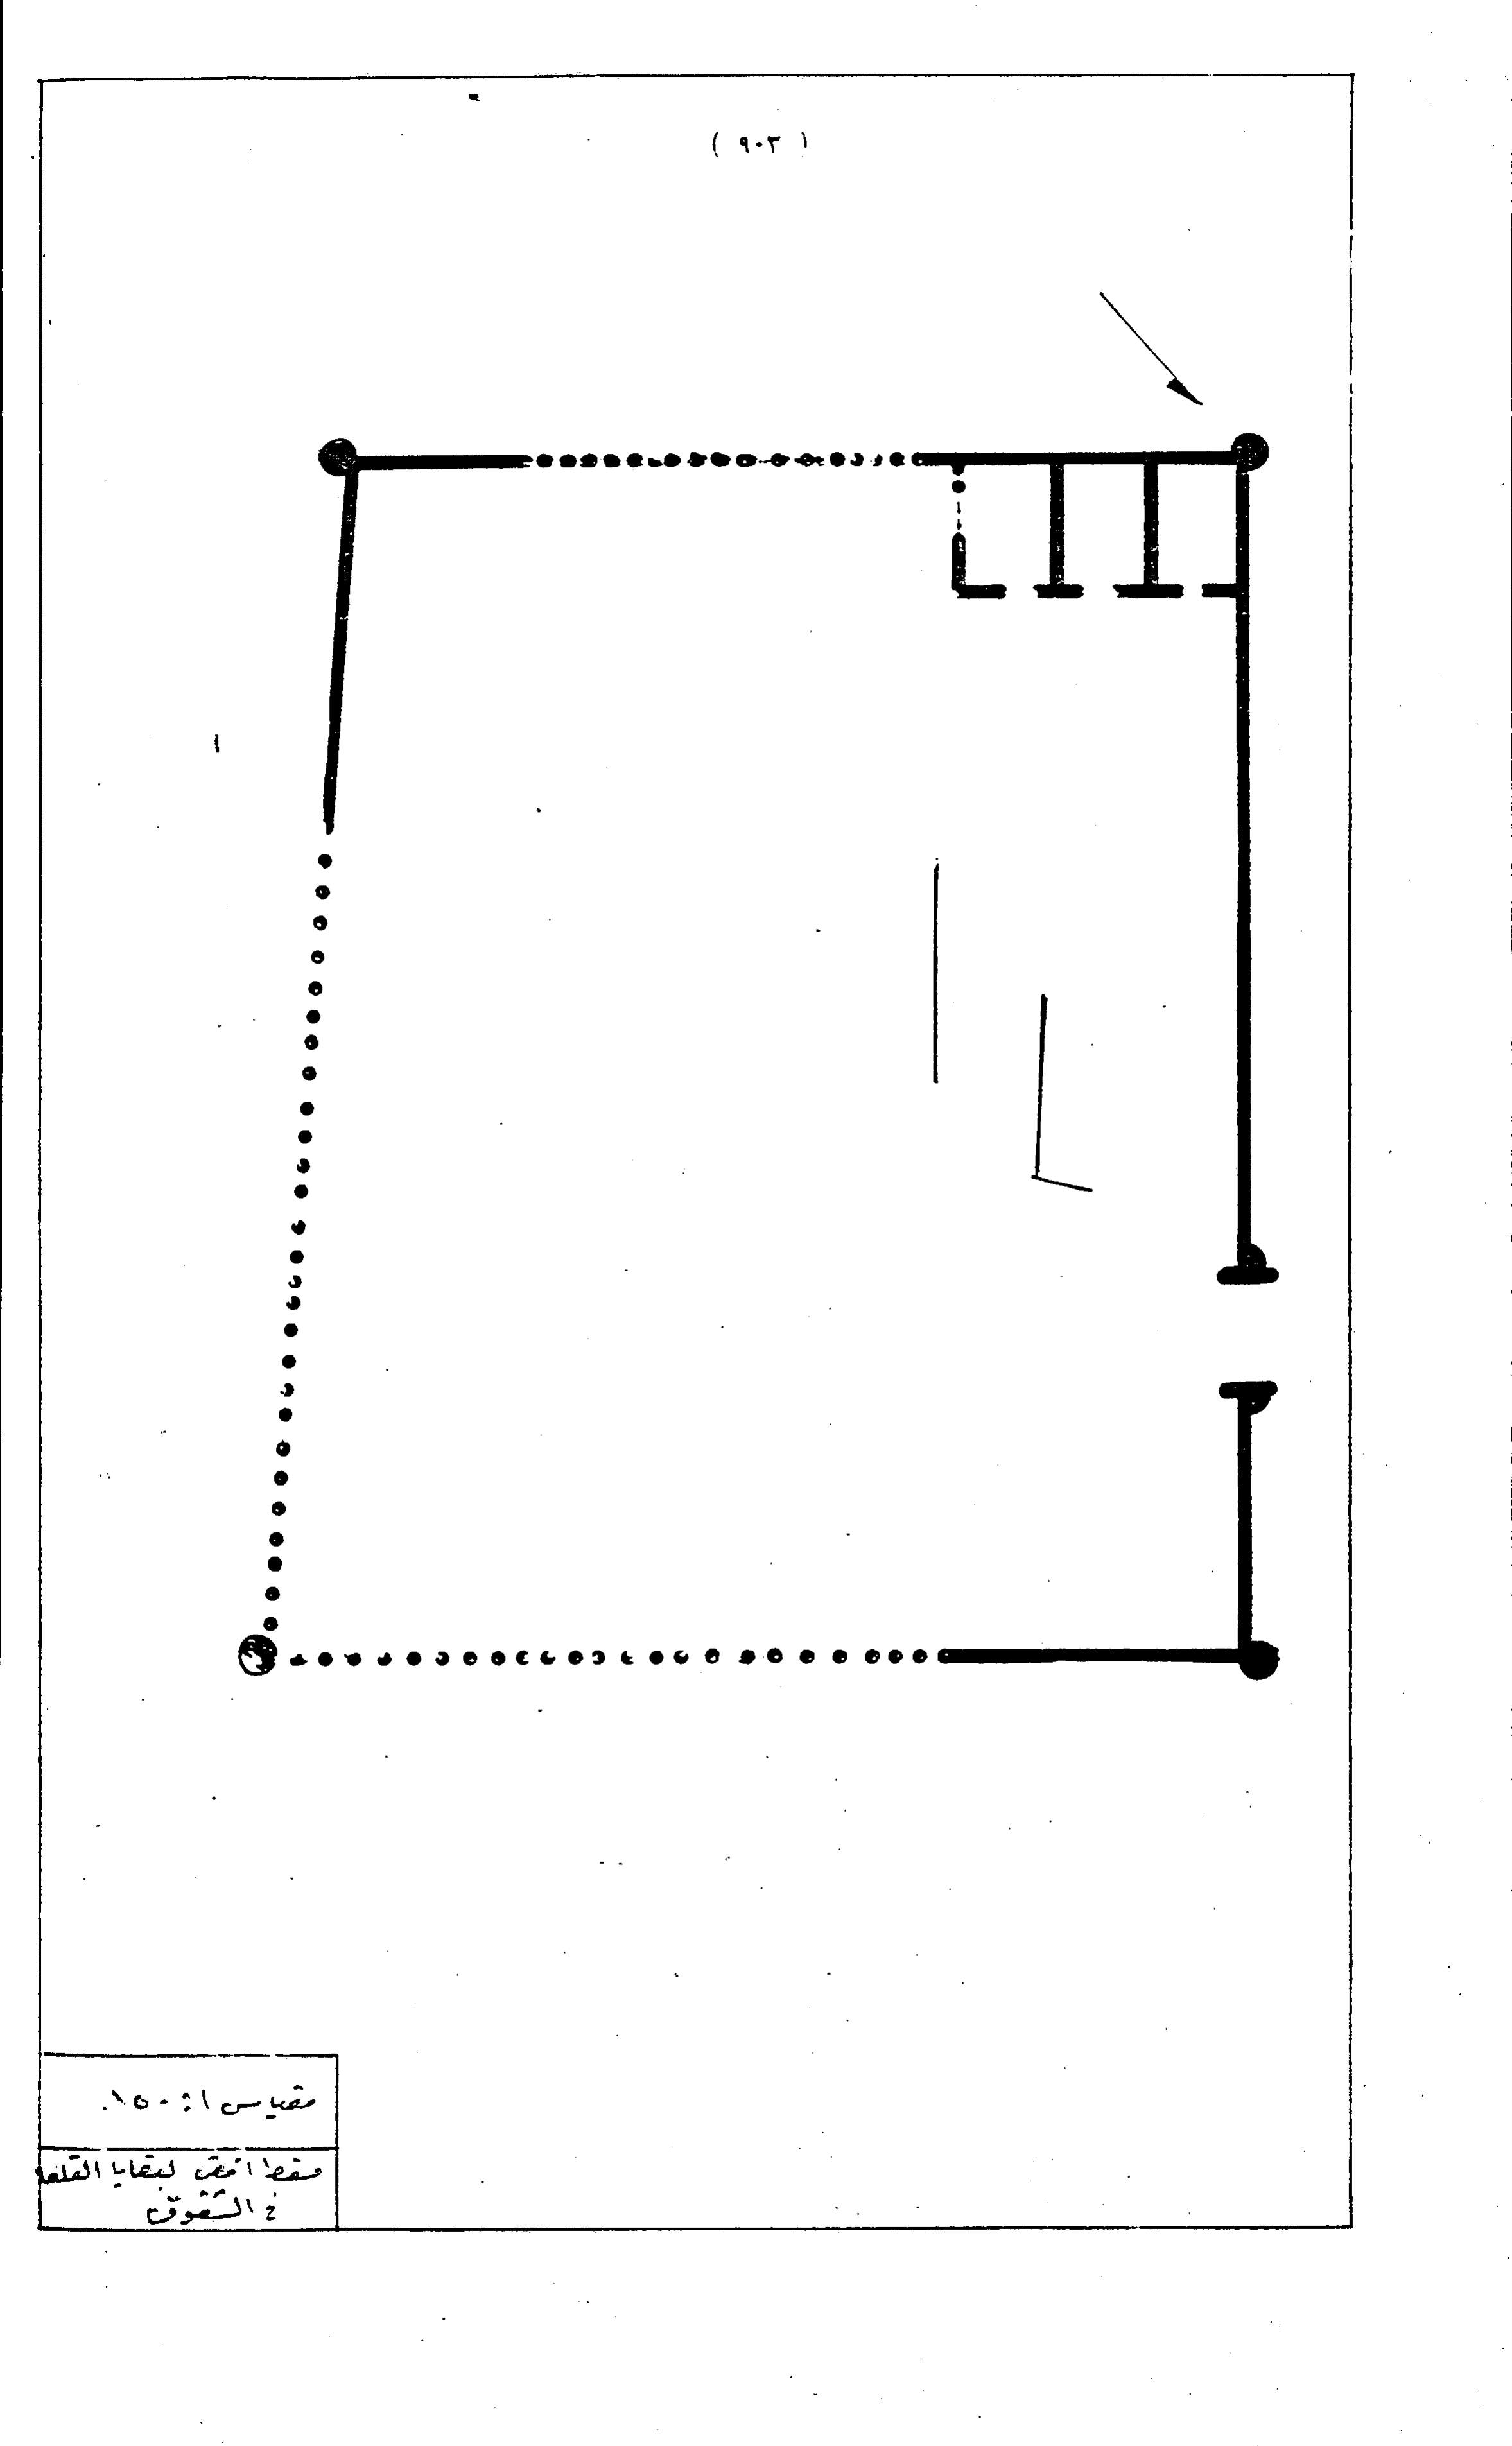 ( ٩٠٣ )
مقياس ١ : ١٥٠
مسقط افقى لبقايا القلعة
فى الشقوق